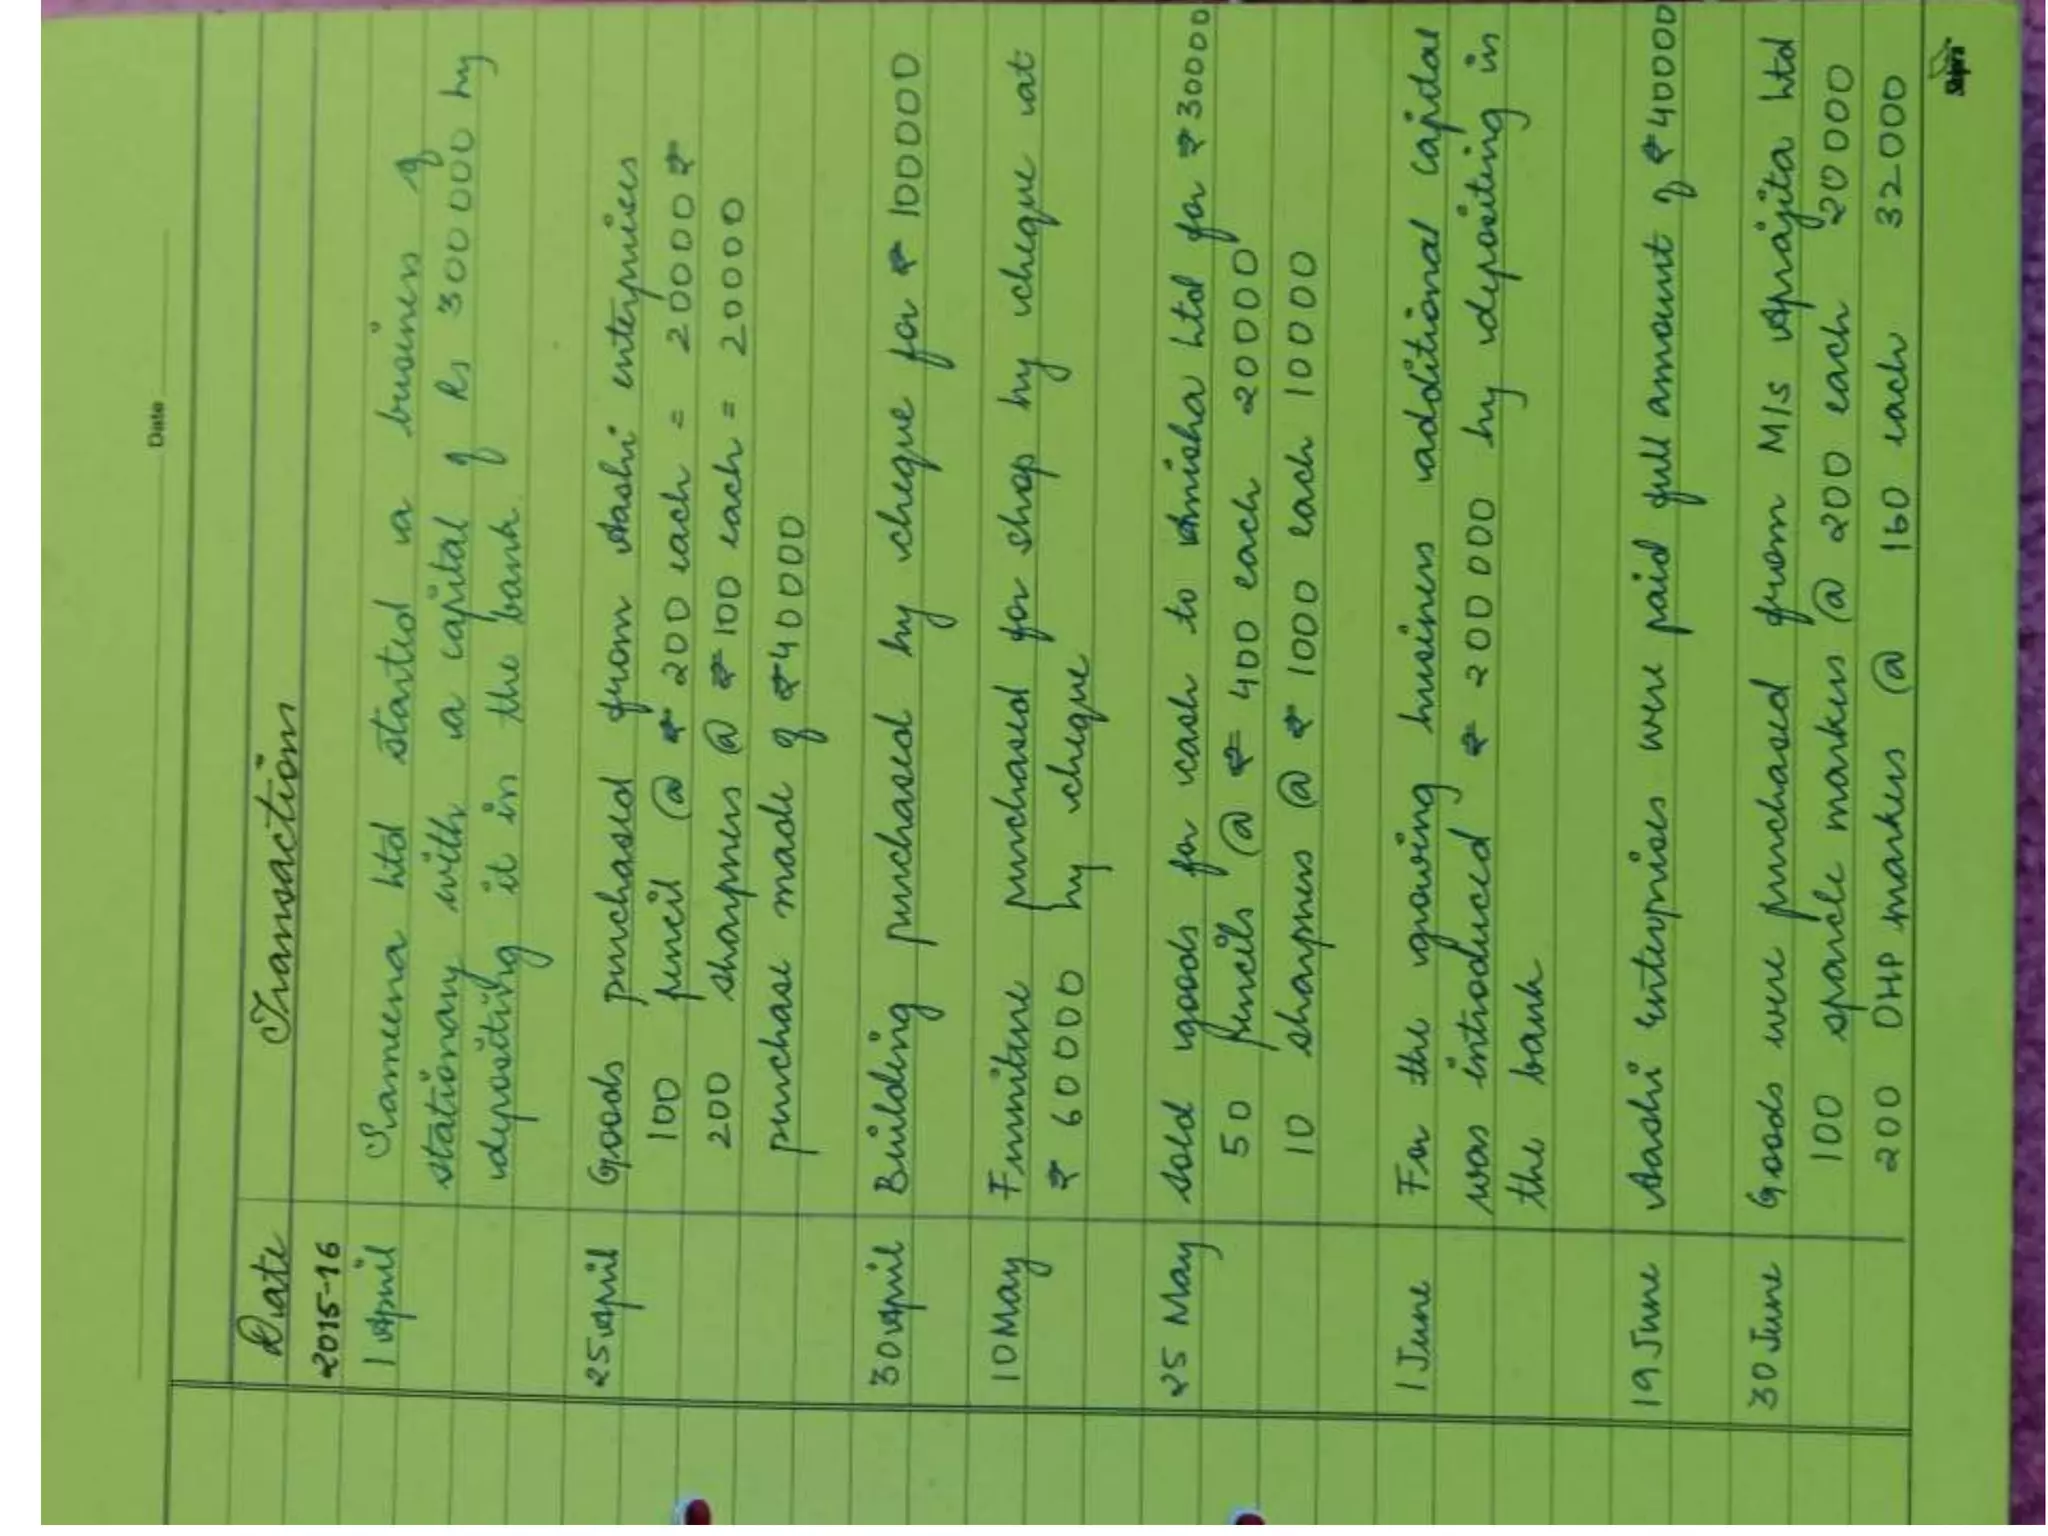 Date
Date Transaction
2015-16
1 April Sameena Ltd started a business of
stationary with a capital of Rs 300000 by
depositing it in the bank.
25 April Goods purchased from Aashi enterprises
100 pencil @ ₹ 200 each = 20000 ₹
200 sharpners @ ₹ 100 each = 20000
purchase made of ₹ 40000
30 April Building purchased by cheque for ₹ 100000
10 May Furniture purchased for shop by cheque at
₹ 60000 by cheque
25 May Sold goods for cash to Amisha Ltd for ₹ 30000
50 pencils @ ₹ 400 each 20000
10 sharpners @ ₹ 1000 each 10000
1 June For the growing business additional capital
was introduced ₹ 200000 by depositing in
the bank
19 June Aashi enterprises were paid full amount of ₹ 40000
30 June Goods were purchased from M/s Aprajita Ltd
100 sparcle markers @ 200 each 20000
200 OHP markers @ 160 each 32000
Shipra